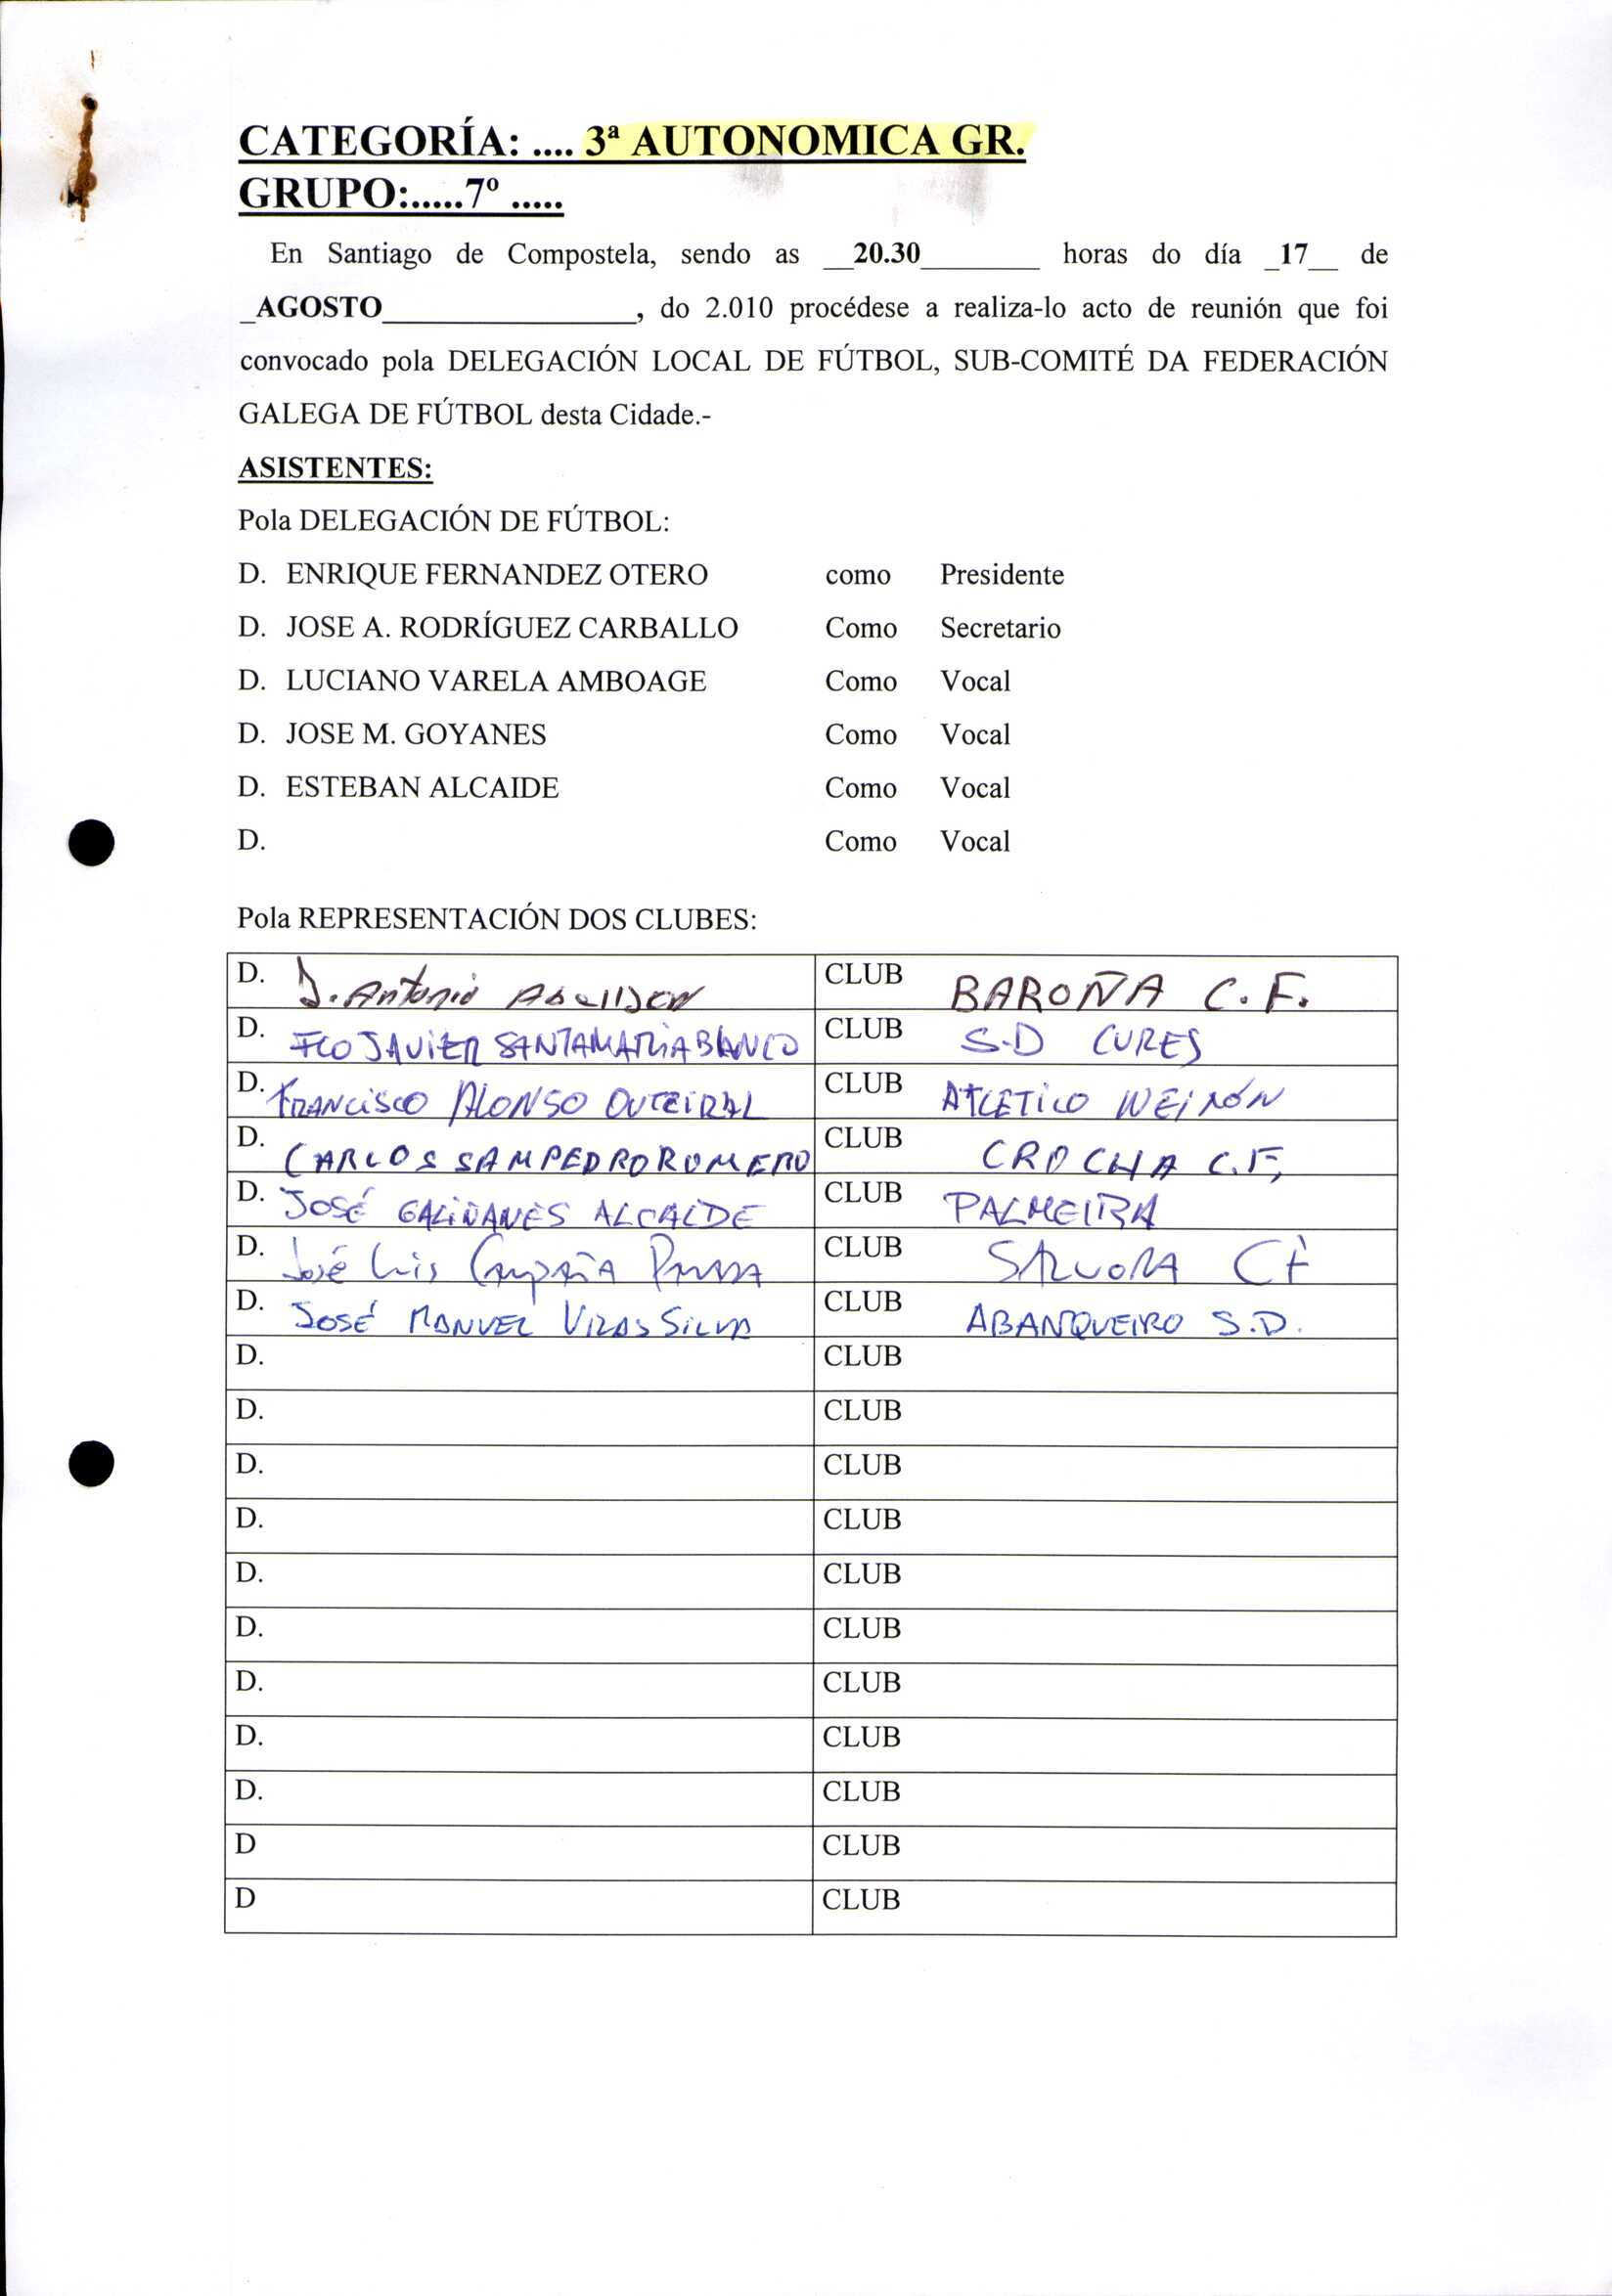 CATEGORÍA: .... 3ª AUTONOMICA GR.
GRUPO:.....7º .....
En Santiago de Compostela, sendo as __20.30________ horas do día _17__ de
_AGOSTO_________________, do 2.010 procédese a realiza-lo acto de reunión que foi
convocado pola DELEGACIÓN LOCAL DE FÚTBOL, SUB-COMITÉ DA FEDERACIÓN
GALEGA DE FÚTBOL desta Cidade.-
ASISTENTES:
Pola DELEGACIÓN DE FÚTBOL:
D. ENRIQUE FERNANDEZ OTERO como Presidente
D. JOSE A. RODRÍGUEZ CARBALLO Como Secretario
D. LUCIANO VARELA AMBOAGE Como Vocal
D. JOSE M. GOYANES Como Vocal
D. ESTEBAN ALCAIDE Como Vocal
D. Como Vocal
Pola REPRESENTACIÓN DOS CLUBES:
D. J. Antonio CLUB BAROÑA C.F.
D. FCO JAVIER SANTAMARIA BLANCO CLUB S.D CURES
D. FRANCISCO ALONSO OUTEIRAL CLUB ATLETICO
D. CARLOS SAMPEDRO ROMERO CLUB CROCHA C.F,
D. JOSÉ GALIÑANES ALCALDE CLUB PALMEIRA
D. José Luis CLUB SALVORA CF
D. JOSÉ MANUEL VILAS SILVA CLUB ABANQUEIRO S.D.
D. CLUB
D. CLUB
D. CLUB
D. CLUB
D. CLUB
D. CLUB
D. CLUB
D. CLUB
D. CLUB
D CLUB
D CLUB